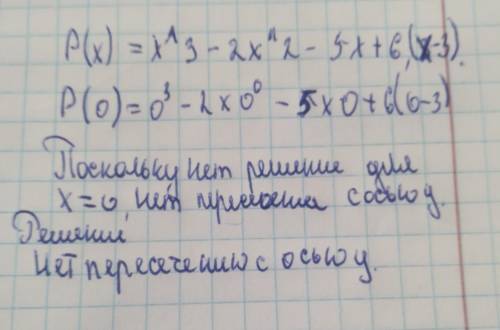 P(x) = x^3 - 2x^2 - 5x + 6, (x-3).
P(0) = 0³ - 2x0⁰ - 5x0 + 6(0-3)
Поскольку нет решение для
x=0, нет пересечения с осью y.
Решений
Нет пересечению с осью y.